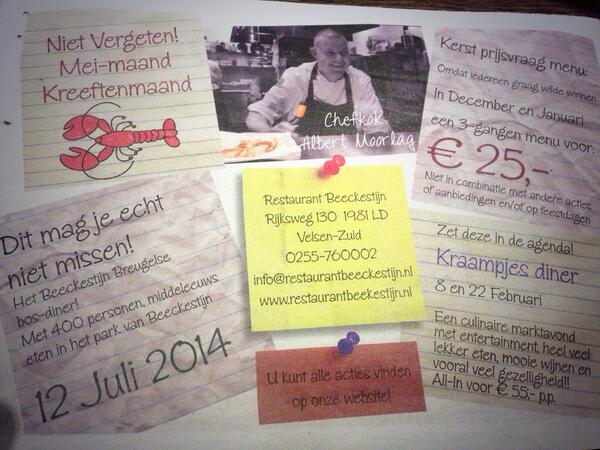 Niet Vergeten!
Mei-maand
Kreeftenmaand
Chefkok
Albert Moorlag
Kerst prijsvraag menu:
Omdat iedereen graag wilde winnen
In December en Januari
een 3-gangen menu voor:
€ 25,-
Niet in combinatie met andere acties
of aanbiedingen en/of op feestdagen
Dit mag je echt
niet missen!
Het Beeckestijn Breugelse
bos-diner!
Met 400 personen, middeleeuws
eten in het park van Beeckestijn
12 Juli 2014
Restaurant Beeckestijn
Rijksweg 130 1981 LD
Velsen-Zuid
0255-760002
info@restaurantbeeckestijn.nl
www.restaurantbeekestijn.nl
U kunt alle acties vinden
op onze website!
Zet deze in de agenda!
Kraampjes diner
8 en 22 Februari
Een culinaire marktavond
met entertainment, heel veel
lekker eten, mooie wijnen en
vooral veel gezelligheid!!
All-In voor € 55,- p.p.